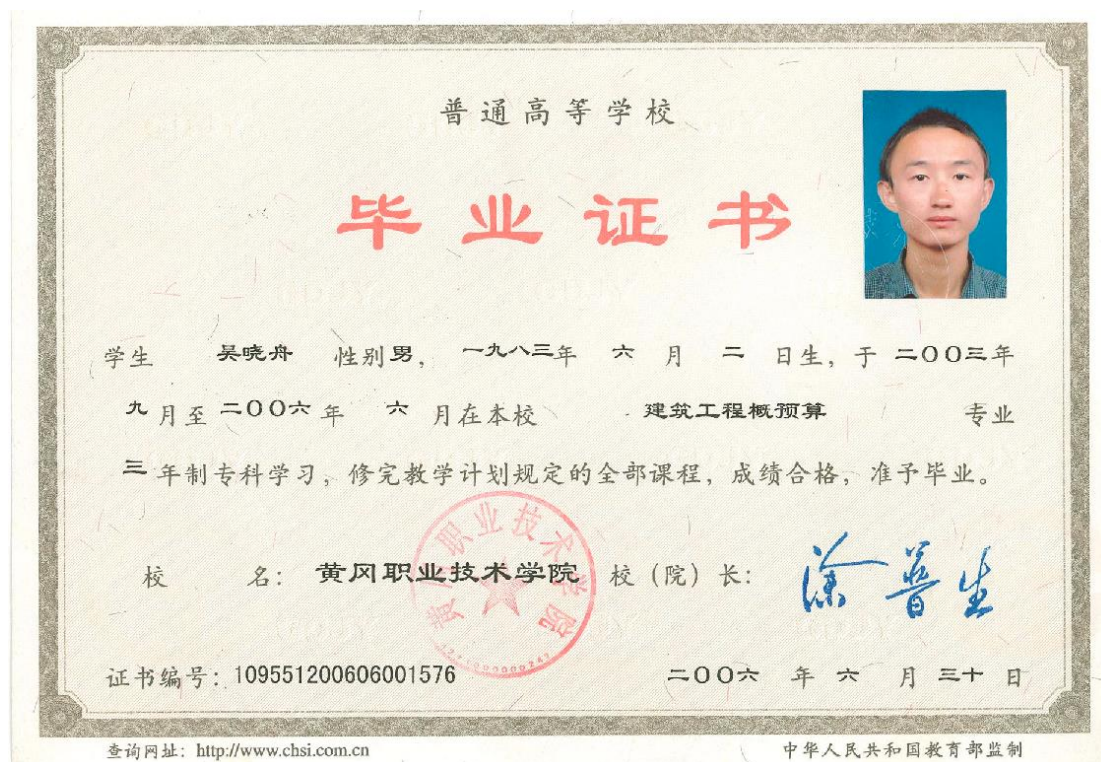 普通高等学校
毕业证书
学生 吴晓舟 性别男，一九八三年 六 月 二 日生，于 二〇〇三年
九月至 二〇〇六 年 六 月在本校 建筑工程概预算 专业
三 年制专科学习，修完教学计划规定的全部课程，成绩合格，准予毕业。
校 名：黄冈职业技术学院 校（院）长：涂普生
黄冈职业技术学院
证书编号：109551200606001576 二〇〇六 年 六 月 三十 日
查询网址：http://www.chsi.com.cn 中华人民共和国教育部监制